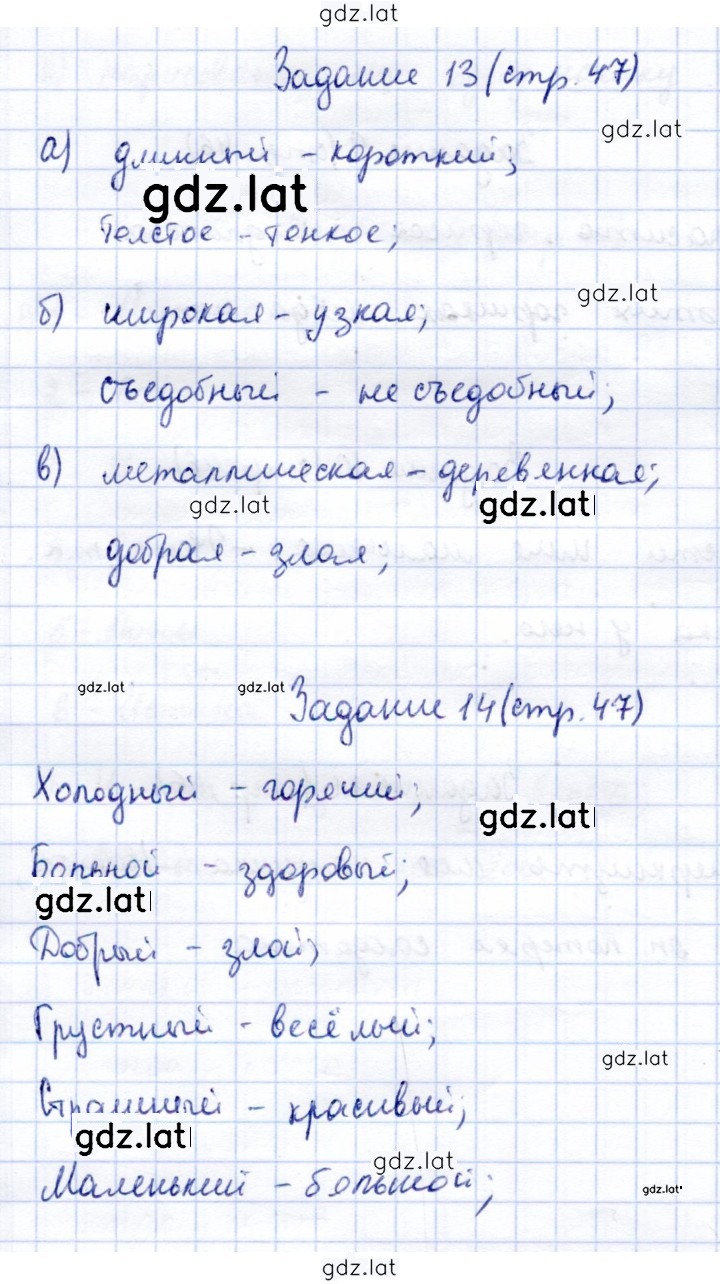 gdz.lat
Задание 13 (стр. 47)
gdz.lat
а) длинный – короткий;
gdz.lat
толстое – тонкое;
gdz.lat
б) широкая – узкая;
съедобный – не съедобный;
в) металлическая – деревянная;
gdz.lat
gdz.lat
добрая – злая;
gdz.lat gdz.lat
Задание 14 (стр. 47)
Холодный – горячий;
gdz.lat
Больной – здоровый;
gdz.lat
Добрый – злой;
Грустный – весёлый;
gdz.lat
Страшный – красивый;
gdz.lat
gdz.lat
Маленький – большой;
gdz.lat
gdz.lat